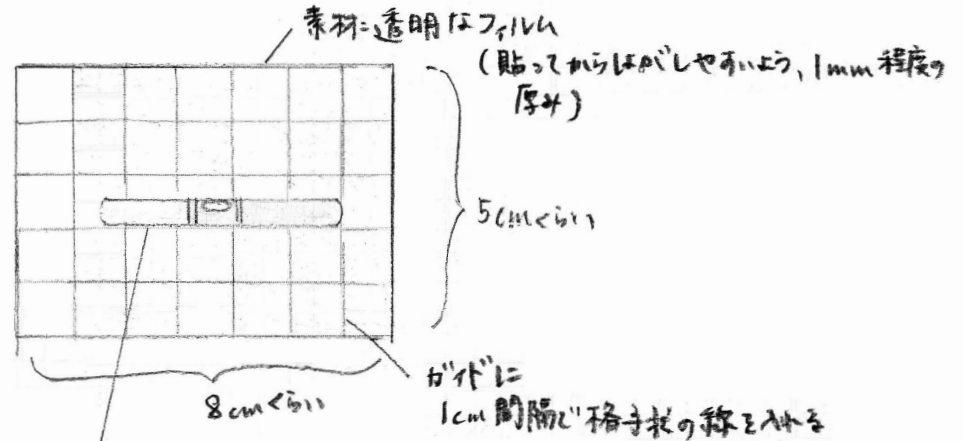 素材：透明なフィルム
（貼ってからはがしやすいよう、1mm程度の
厚み）
5cmくらい
8cmくらい
ガイドに
1cm間隔で格子状の線を入れる